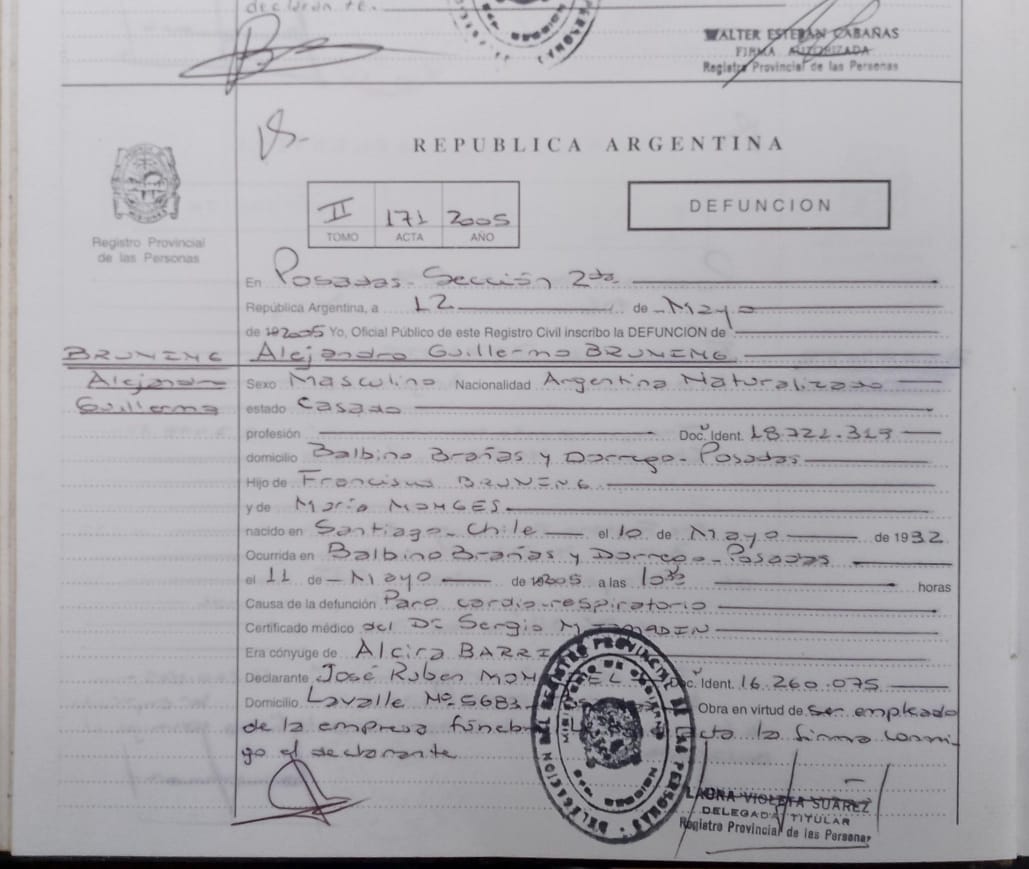 declarante.
WALTER ESTEBAN CABAÑAS
FIRMA AUTORIZADA
Registro Provincial de las Personas
REPUBLICA ARGENTINA
II 171 2005
TOMO ACTA AÑO
DEFUNCION
Registro Provincial
de las Personas
En Posadas - Sección 2da
República Argentina, a 12 de Mayo
de 2005 Yo, Oficial Público de este Registro Civil inscribo la DEFUNCION de
BRUNING Alejandro Guillermo BRUNING
Alejandro
Guillermo
Sexo Masculino Nacionalidad Argentina Naturalizado
estado Casado
profesión Doc. Ident. 18.721.319
domicilio Balbino Brañas y Dorrego - Posadas
Hijo de Francisco BRUNING
y de María MONGES
nacido en Santiago - Chile el 10 de Mayo de 1932
Ocurrida en Balbino Brañas y Dorrego - Posadas
el 11 de Mayo de 2005 a las 10 horas
Causa de la defunción Paro cardio-respiratorio
Certificado médico del Dr Sergio M
Era cónyuge de Alcira
Declarante José Ruben Doc. Ident. 16.260.075
Domicilio Lavalle Nº 5683 Obra en virtud de ser empleado
de la empresa la firma conmi-
go el declarante
DELEGACION DEL REGISTRO PROVINCIAL DE LAS PERSONAS
MINISTERIO DE GOBIERNO
MISIONES
LAURA VIOLETA SUAREZ
DELEGADA TITULAR
Registro Provincial de las Personas